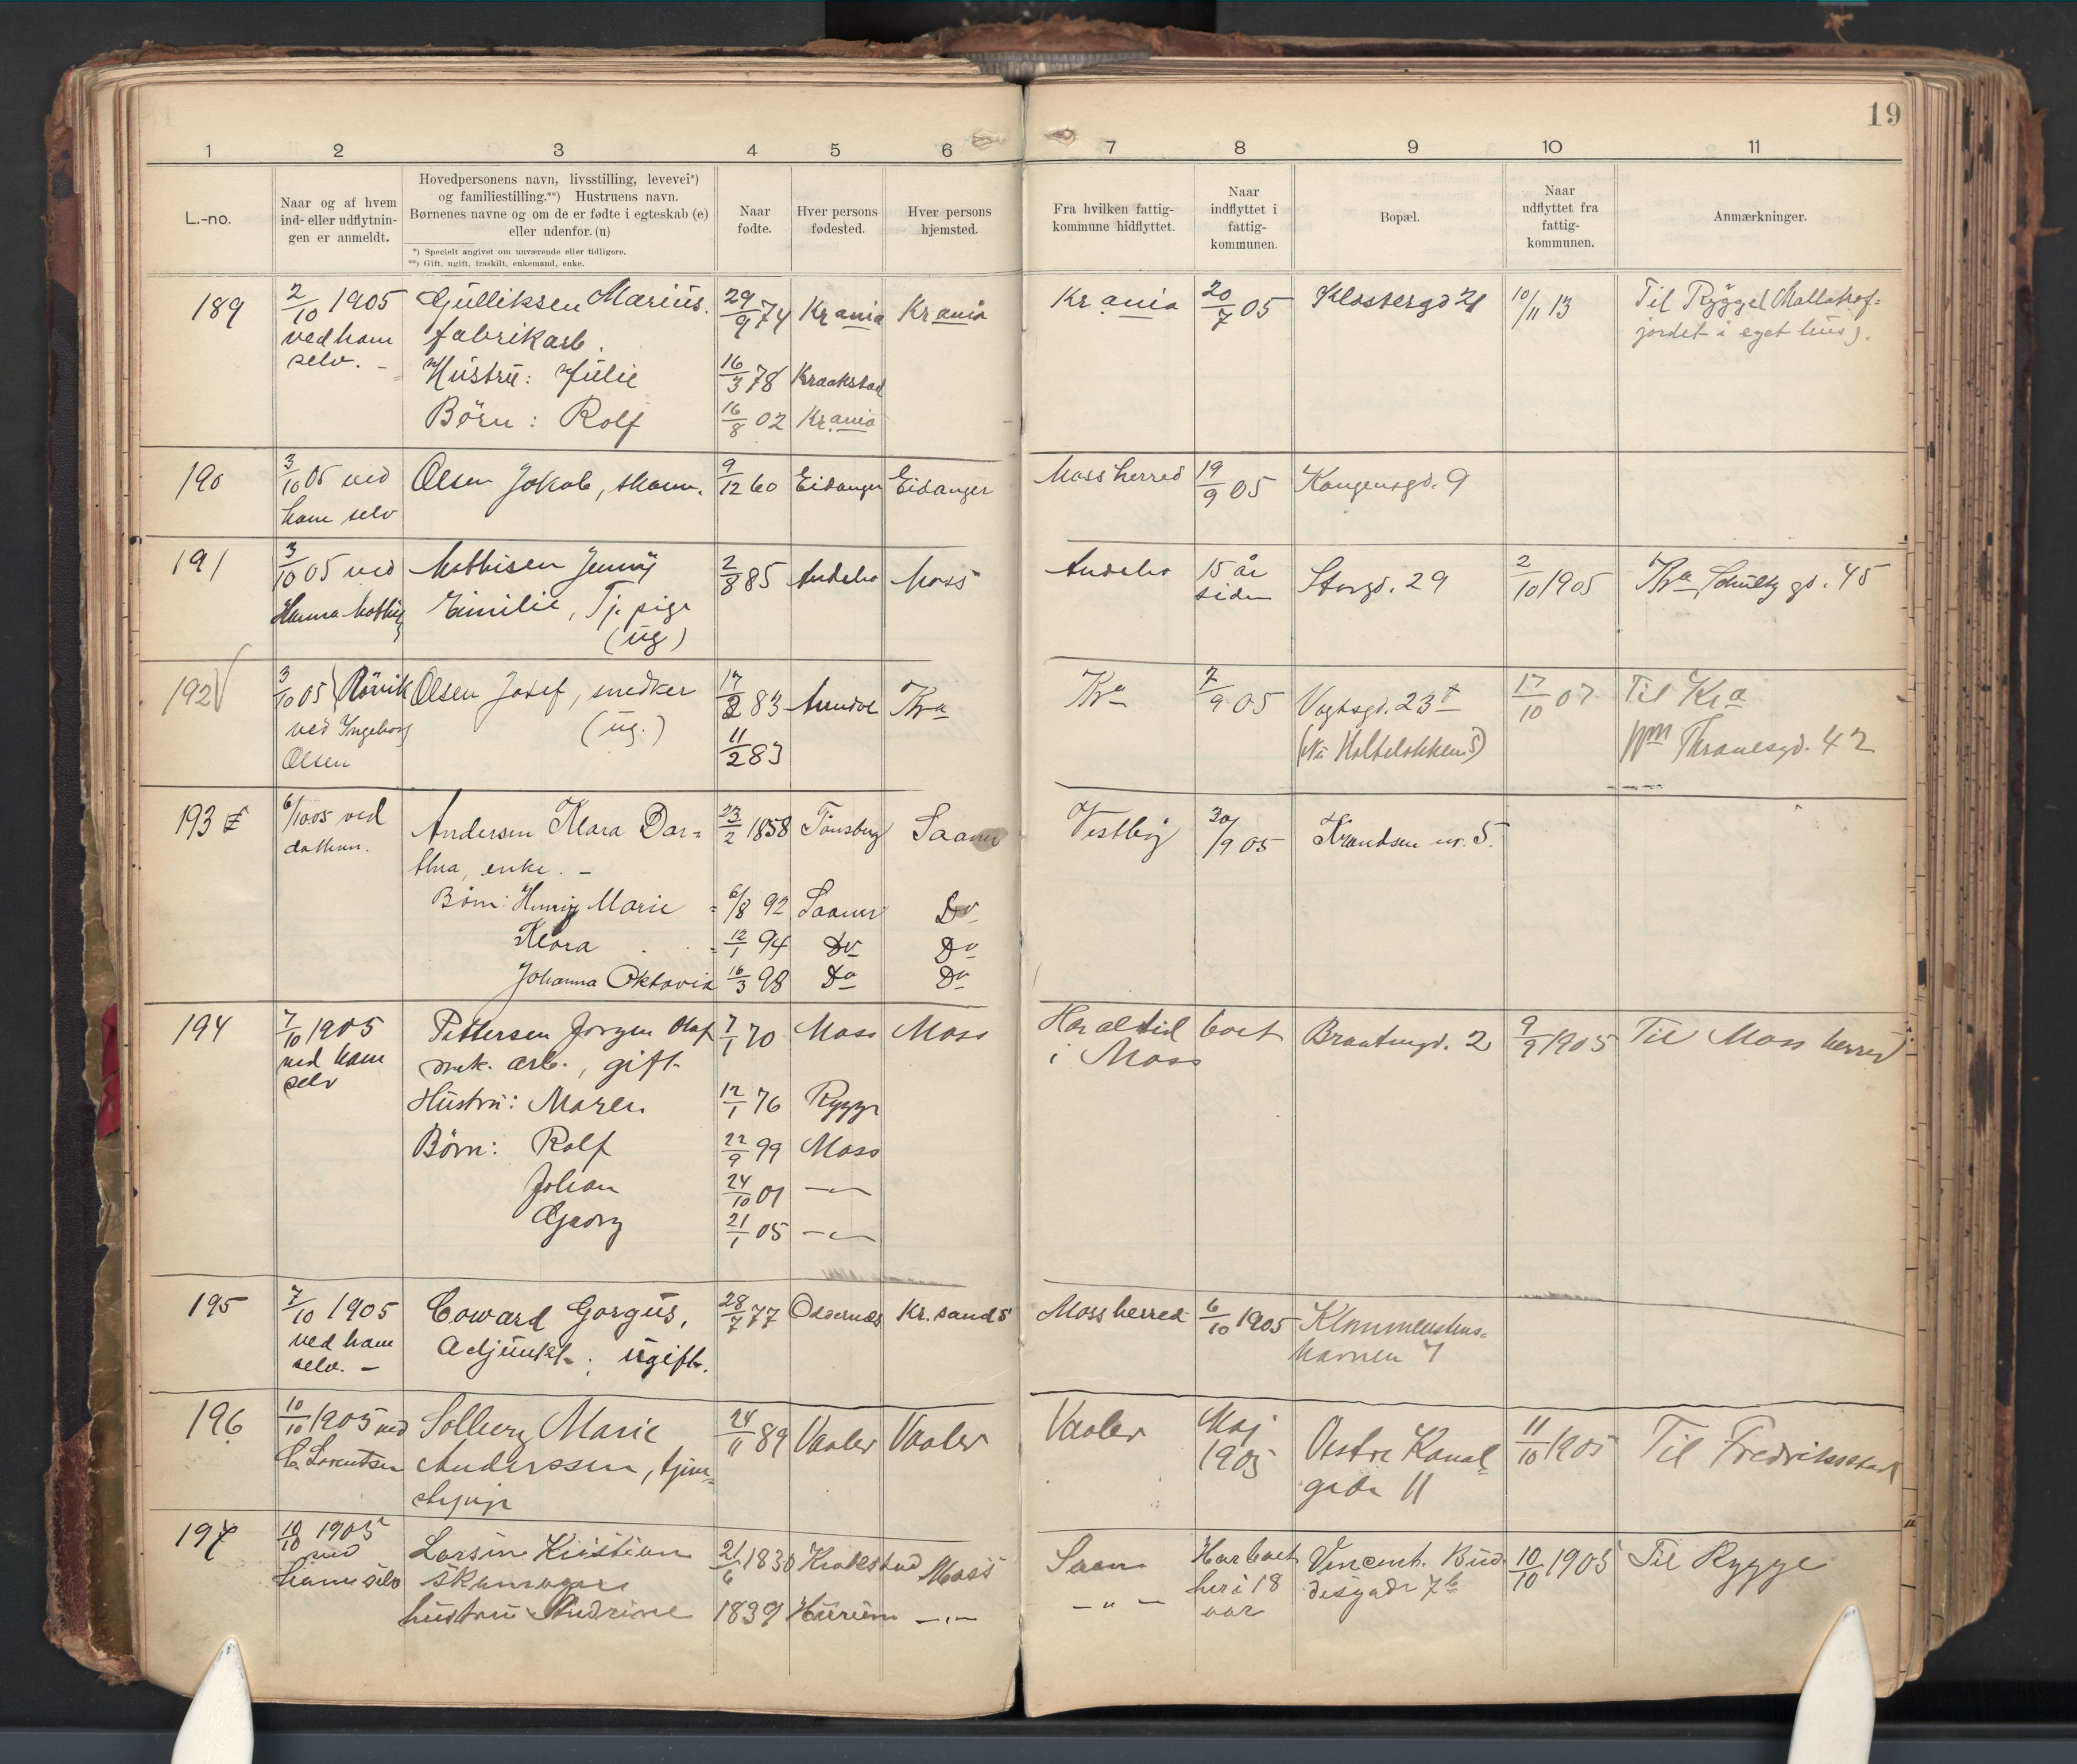 19
1 2 3 4 5 6 7 8 9 10 11
L.-no.
Naar og af hvem ind- eller udflytnin- gen er anmeldt.
Hovedpersonens navn, livsstilling, levevei*)
og familiestilling.**) Hustruens navn.
Børnenes navne og om de er fødte i egteskab (e)
eller udenfor. (u)
*) Specielt angivet om nuværende eller tidligere.
**) Gift, ugift, fraskilt, enkemand, enke.
Naar fødte.
Hver persons fødested.
Hver persons hjemsted.
Fra hvilken fattig- kommune hidflyttet.
Naar indflyttet i fattig- kommunen.
Bopæl.
Naar udflyttet fra fattig- kommunen.
Anmærkninger.
189 2/10 1905 Gulliksen Marius. 29/9 74 Kr.ania Kr.ania Kr.ania 20/7 05 Klostergd 21 10/11 13 Til Rygge (
ved ham fabrikarb. jordet i eget hus).
selv. – Hustru: Julie 16/3 78 Kraakstad
Børn: Rolf 16/8 02 Kr.ania
190 3/10 05 ved Olsen Jakob, skom. 9/12 60 Eidanger Eidanger Moss herred 19/9 05 Kongensgd. 9
ham selv
191 3/10 05 ved Mathisen Jenny 2/8 85 Andebo Moss Andebo 15 år Storgd. 29 2/10 1905 Kra Schultzgd. 45
Hanna Emilie, Tj. pige siden
(ug)
192 3/10 05 Rövik Olsen Josef, snedker 17/8 83 Kra Kra 7/9 05 Vogtsgd. 23 17/10 07 Til Kra
ved Ingeborg (ug.) Thranesgd. 42
Olsen 11/2 83
193 6/10 05 ved Andersen Klara Dor= 23/2 1858 Tönsberg Saaner Vestby 30/9 05 Krandsen nr. 5.
datteren. thea, enke. –
Børn: Henny Marie 6/8 92 Saaner Do
Klara 12/1 94 Do Do
Johanna Oktavia 16/3 98 Do Do
194 7/10 1905 Pettersen Jorgen Olaf 7/1 70 Moss Moss Har altid boet 2 9/9 1905 Til Moss herred
ved ham mek. arb., gift. i Moss
selv
Hustru: Maren 12/1 76 Rygge
Børn: Rolf 22/9 99 Moss
Johan 24/10 01 —"—
Georg 21/1 05 —"—
195 7/10 1905 Coward Gorgus, 28/7 77 Oddernæs Kr. sands Moss herred 6/10 1905
ved ham Adjunkt. ; ugift. 7
selv. –
196 10/10 1905 ved Solberg Marie 24/11 89 Vaaler Vaaler Vaaler Maj Vestre Kanal= 11/10 1905 Til Fredriksstad
C. Lorentsen Anderssen, 1905 gade 11
197 10/10 1905 Larsen Kristian 21/6 1830 Krokstad Moss Saan Har boet Vincent. Bud 10/10 1905 Til Rygge
ved skomager her i 18 desgade 7b
ham selv hustru Andrine 1839 Hurum —"— —"— aar